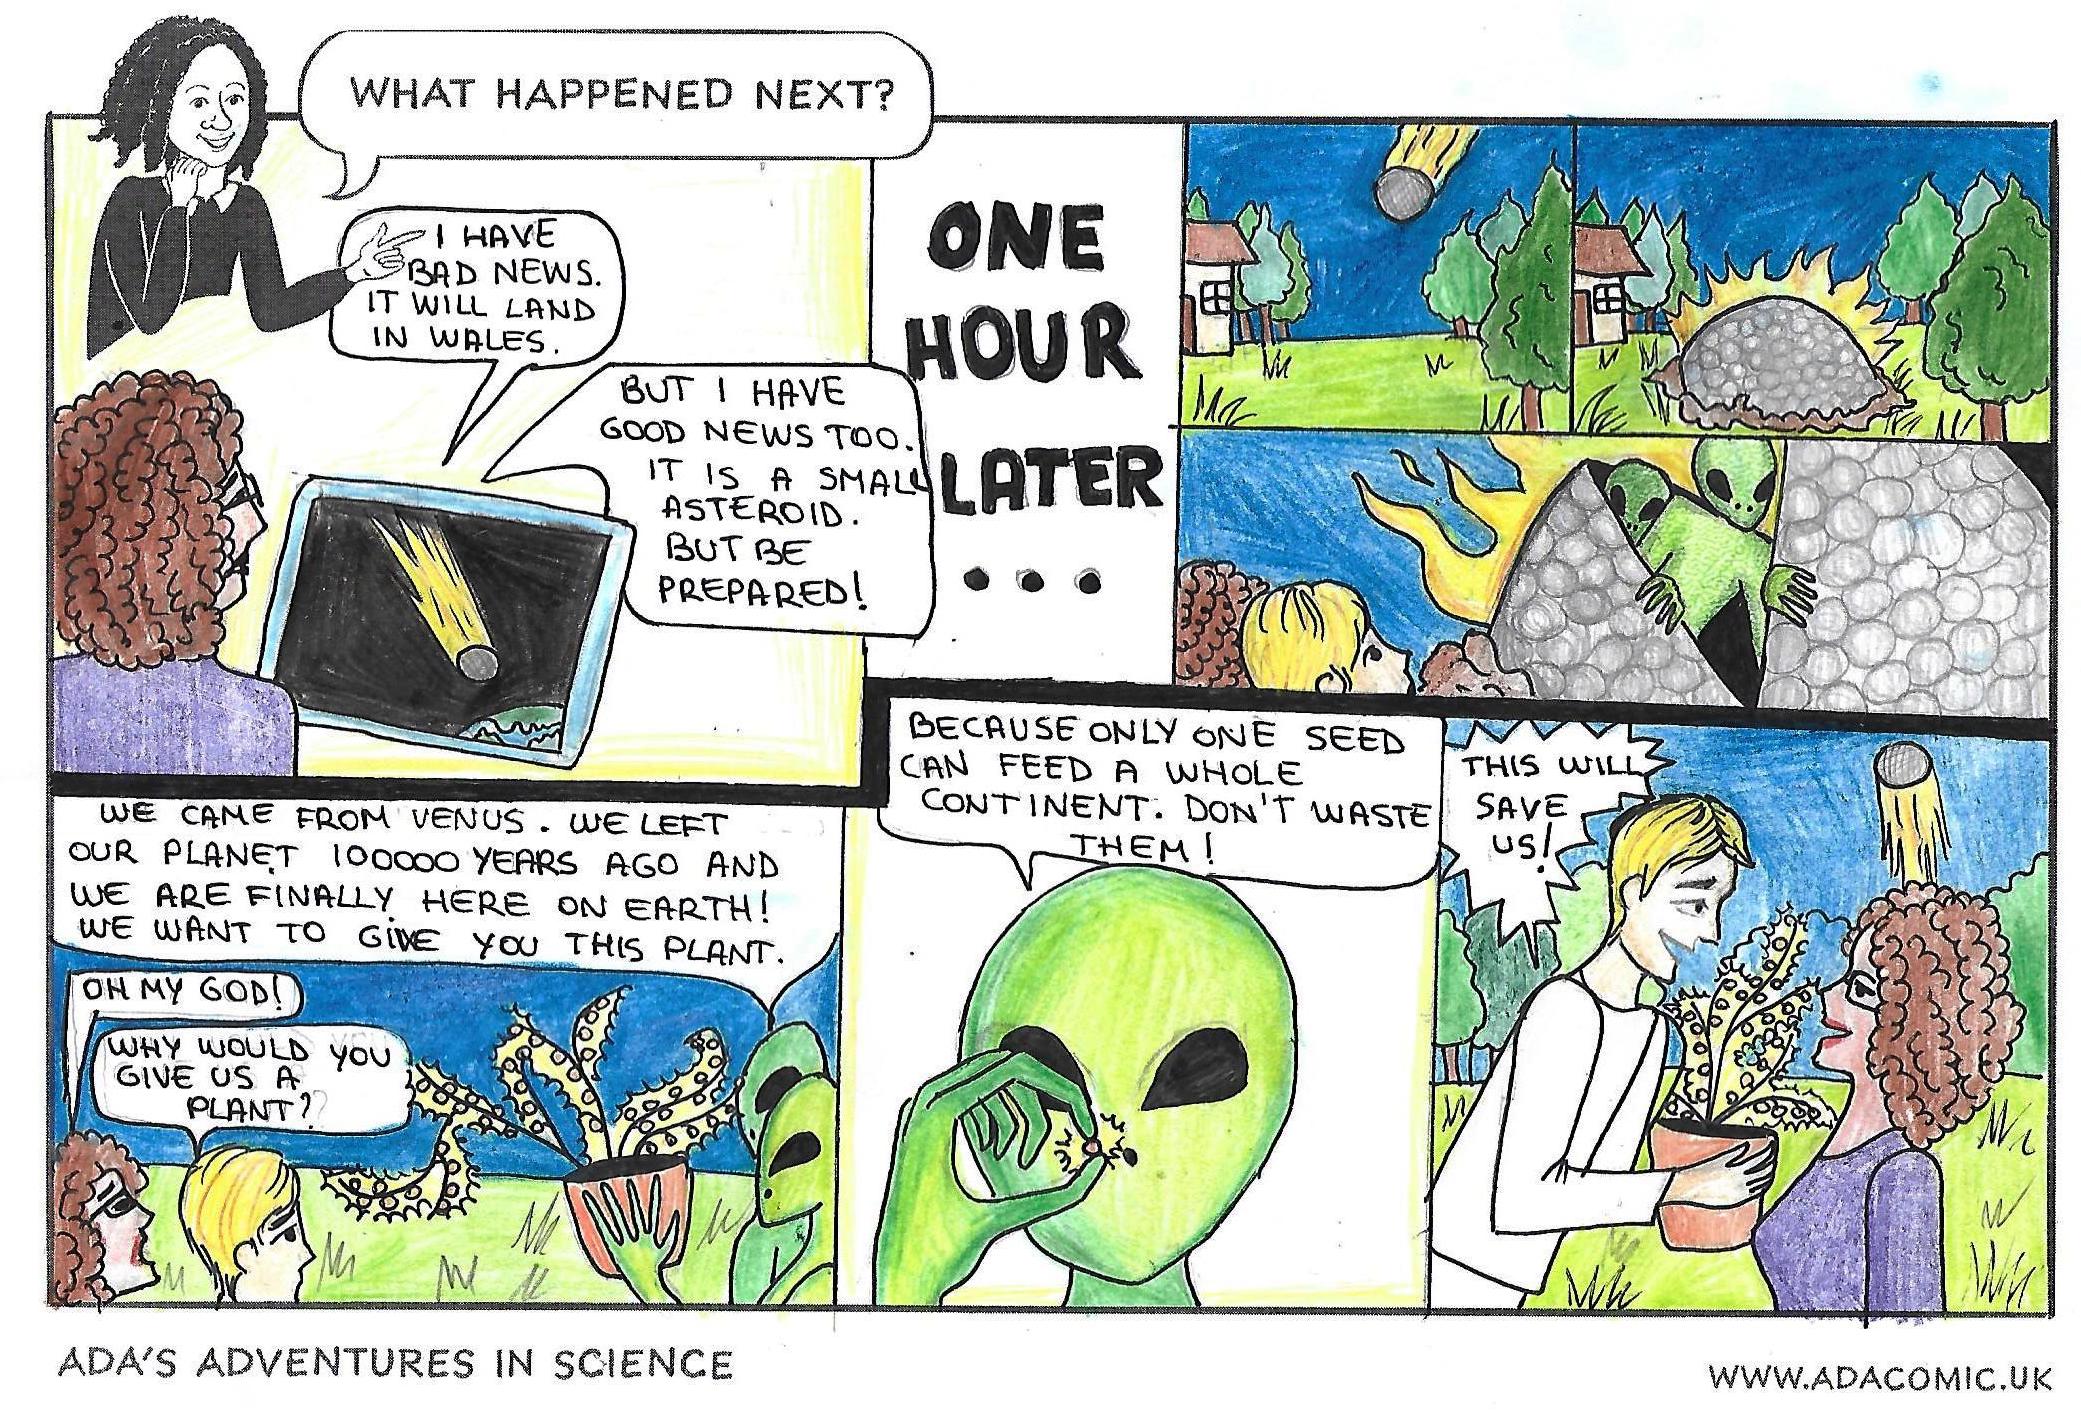 WHAT HAPPENED NEXT?
I HAVE
BAD NEWS.
IT WILL LAND
IN WALES.
BUT I HAVE
GOOD NEWS TOO.
IT IS A SMALL
ASTEROID.
BUT BE
PREPARED!
ONE
HOUR
LATER
...
WE CAME FROM VENUS. WE LEFT
OUR PLANET 100000 YEARS AGO AND
WE ARE FINALLY HERE ON EARTH!
WE WANT TO GIVE YOU THIS PLANT.
OH MY GOD!
WHY WOULD YOU
GIVE US A
PLANT?
BECAUSE ONLY ONE SEED
CAN FEED A WHOLE
CONTINENT. DON'T WASTE
THEM!
THIS WILL
SAVE
US!
ADA'S ADVENTURES IN SCIENCE
WWW.ADACOMIC.UK